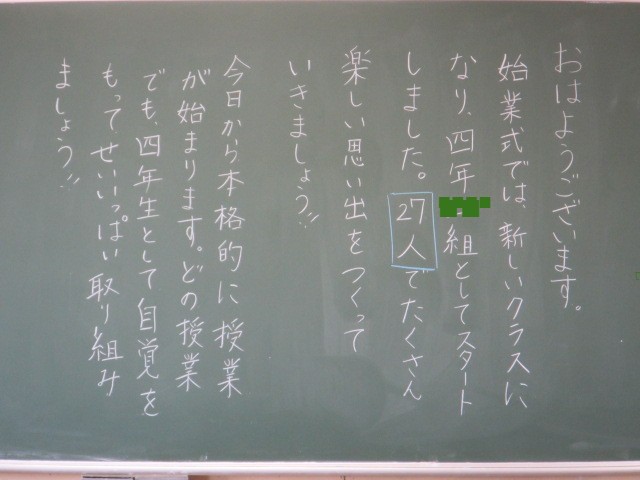 おはようございます。
始業式では、新しいクラスに
なり、四年 組としてスタート
しました。27人でたくさん
楽しい思い出をつくって
いきましょう!!
今日から本格的に授業
が始まります。どの授業
でも、四年生として自覚を
もって、せいいっぱい取り組み
ましょう!!